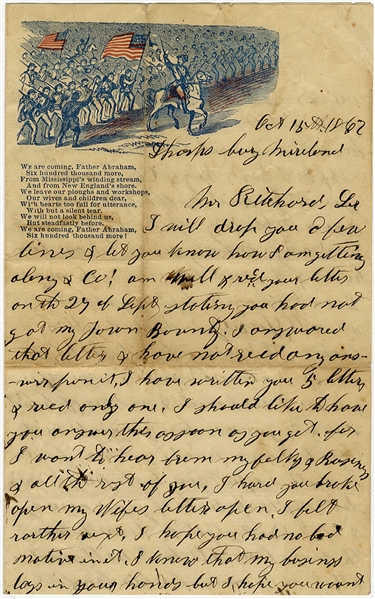 We are coming, Father Abraham,
Six hundred thousand more,
From Mississippi's winding stream,
And from New England's shore.
We leave our ploughs and workshops,
Our wives and children dear,
With hearts too full for utterance,
With but a silent tear.
We will not look behind us,
But steadfastly before,
We are coming, Father Abraham,
Six hundred thousand more!
Oct 15th 1862
Sharps burg
Mr Lee
I will drop you a few
lines & let you know how I am getting
along & Co! am well & recd your letter
on the 27 of Sept stating you had not
got my Town Bounty. I answared
that letter & have not recd any ans-
-wer I have written you 5 letters
& recd only one. I should like to have
you answer this as soon as you get for
I want to hear from my folks & Business
& all the rest of you, I hurd you broke
open my Wifes letter open I felt
rarther vext, I hope you had no bad
motive in it. I know that my business
lays in your hands but I hope you wount